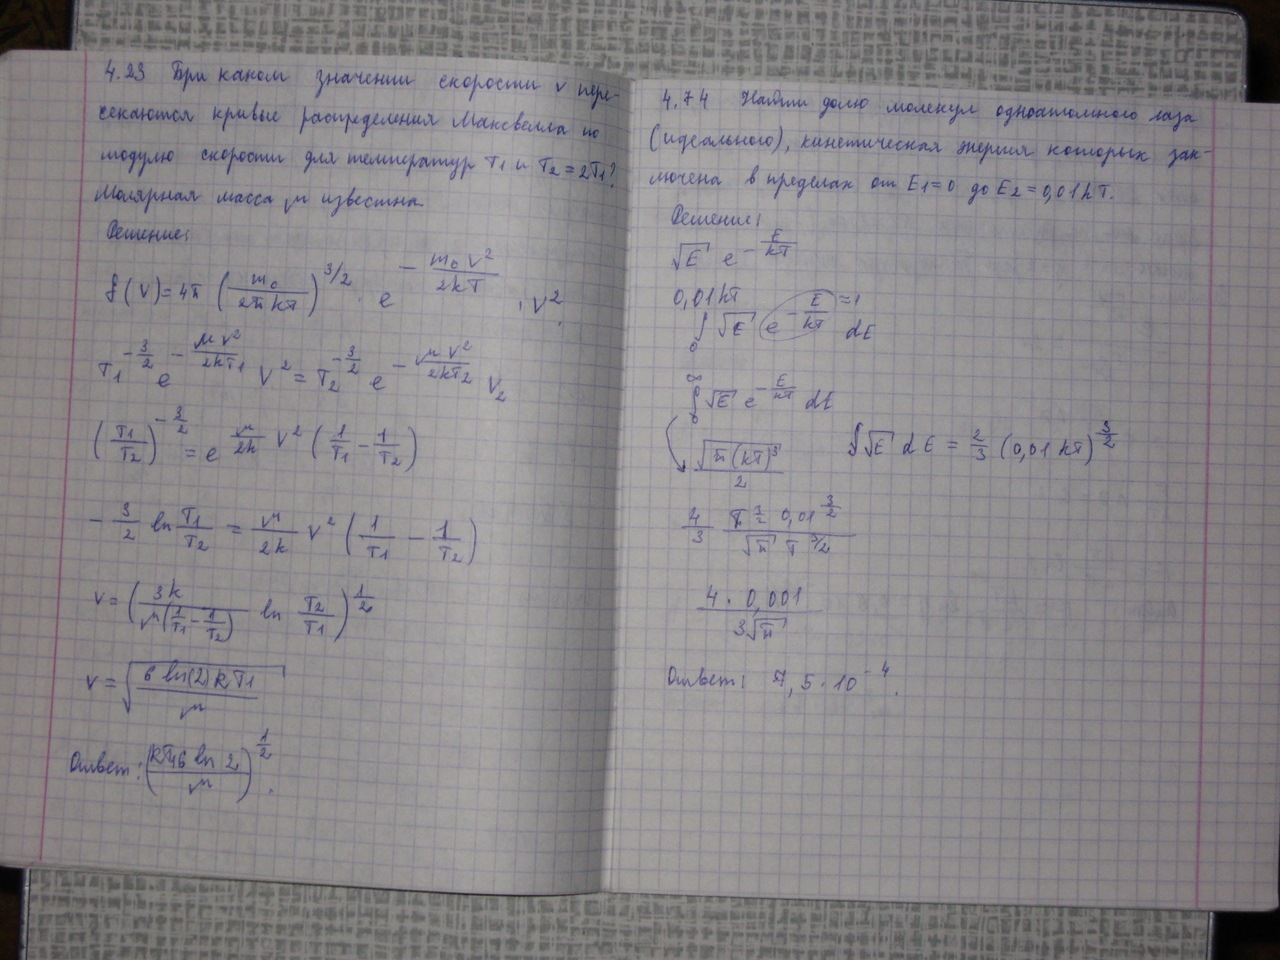 4.23 При каком значении скорости v пере-
секаются кривые распределения Максвелла по
модулю скорости для температур T1 и T2 = 2T1?
Молярная масса μ известна.
Решение:
f(v) = 4π (m₀/2πkT)^3/2 · e^(-m₀v²/2kT) · v².
T1^(-3/2) e^(-μv²/2kT1) v² = T2^(-3/2) e^(-μv²/2kT2) v₂
(T1/T2)^(-3/2) = e^(μ/2k v² (1/T1 - 1/T2))
- 3/2 ln T1/T2 = μ/2k v² (1/T1 - 1/T2)
v = (3k/μ(1/T1 - 1/T2) ln T2/T1)^1/2
v = √(6 ln(2) kT1/μ)
Ответ: (kT1 6 ln 2/μ)^1/2.
4.74 Найти долю молекул одноатомного газа
(идеального), кинетическая энергия которых зак-
лючена в пределах от E1=0 до E2=0,01kT.
Решение:
√E e^(-E/kT)
0,01kT
∫ √E e^(-E/kT) =1 dE
0
∞
∫ √E e^(-E/kT) dE
0
√(π(kT)³)/2 ∫√E dE = 2/3 (0,01 kT)^3/2
4/3 T^3/2 0,01^3/2 / √π T^3/2
4 · 0,001 / 3√π
Ответ: 7,5·10^-4.